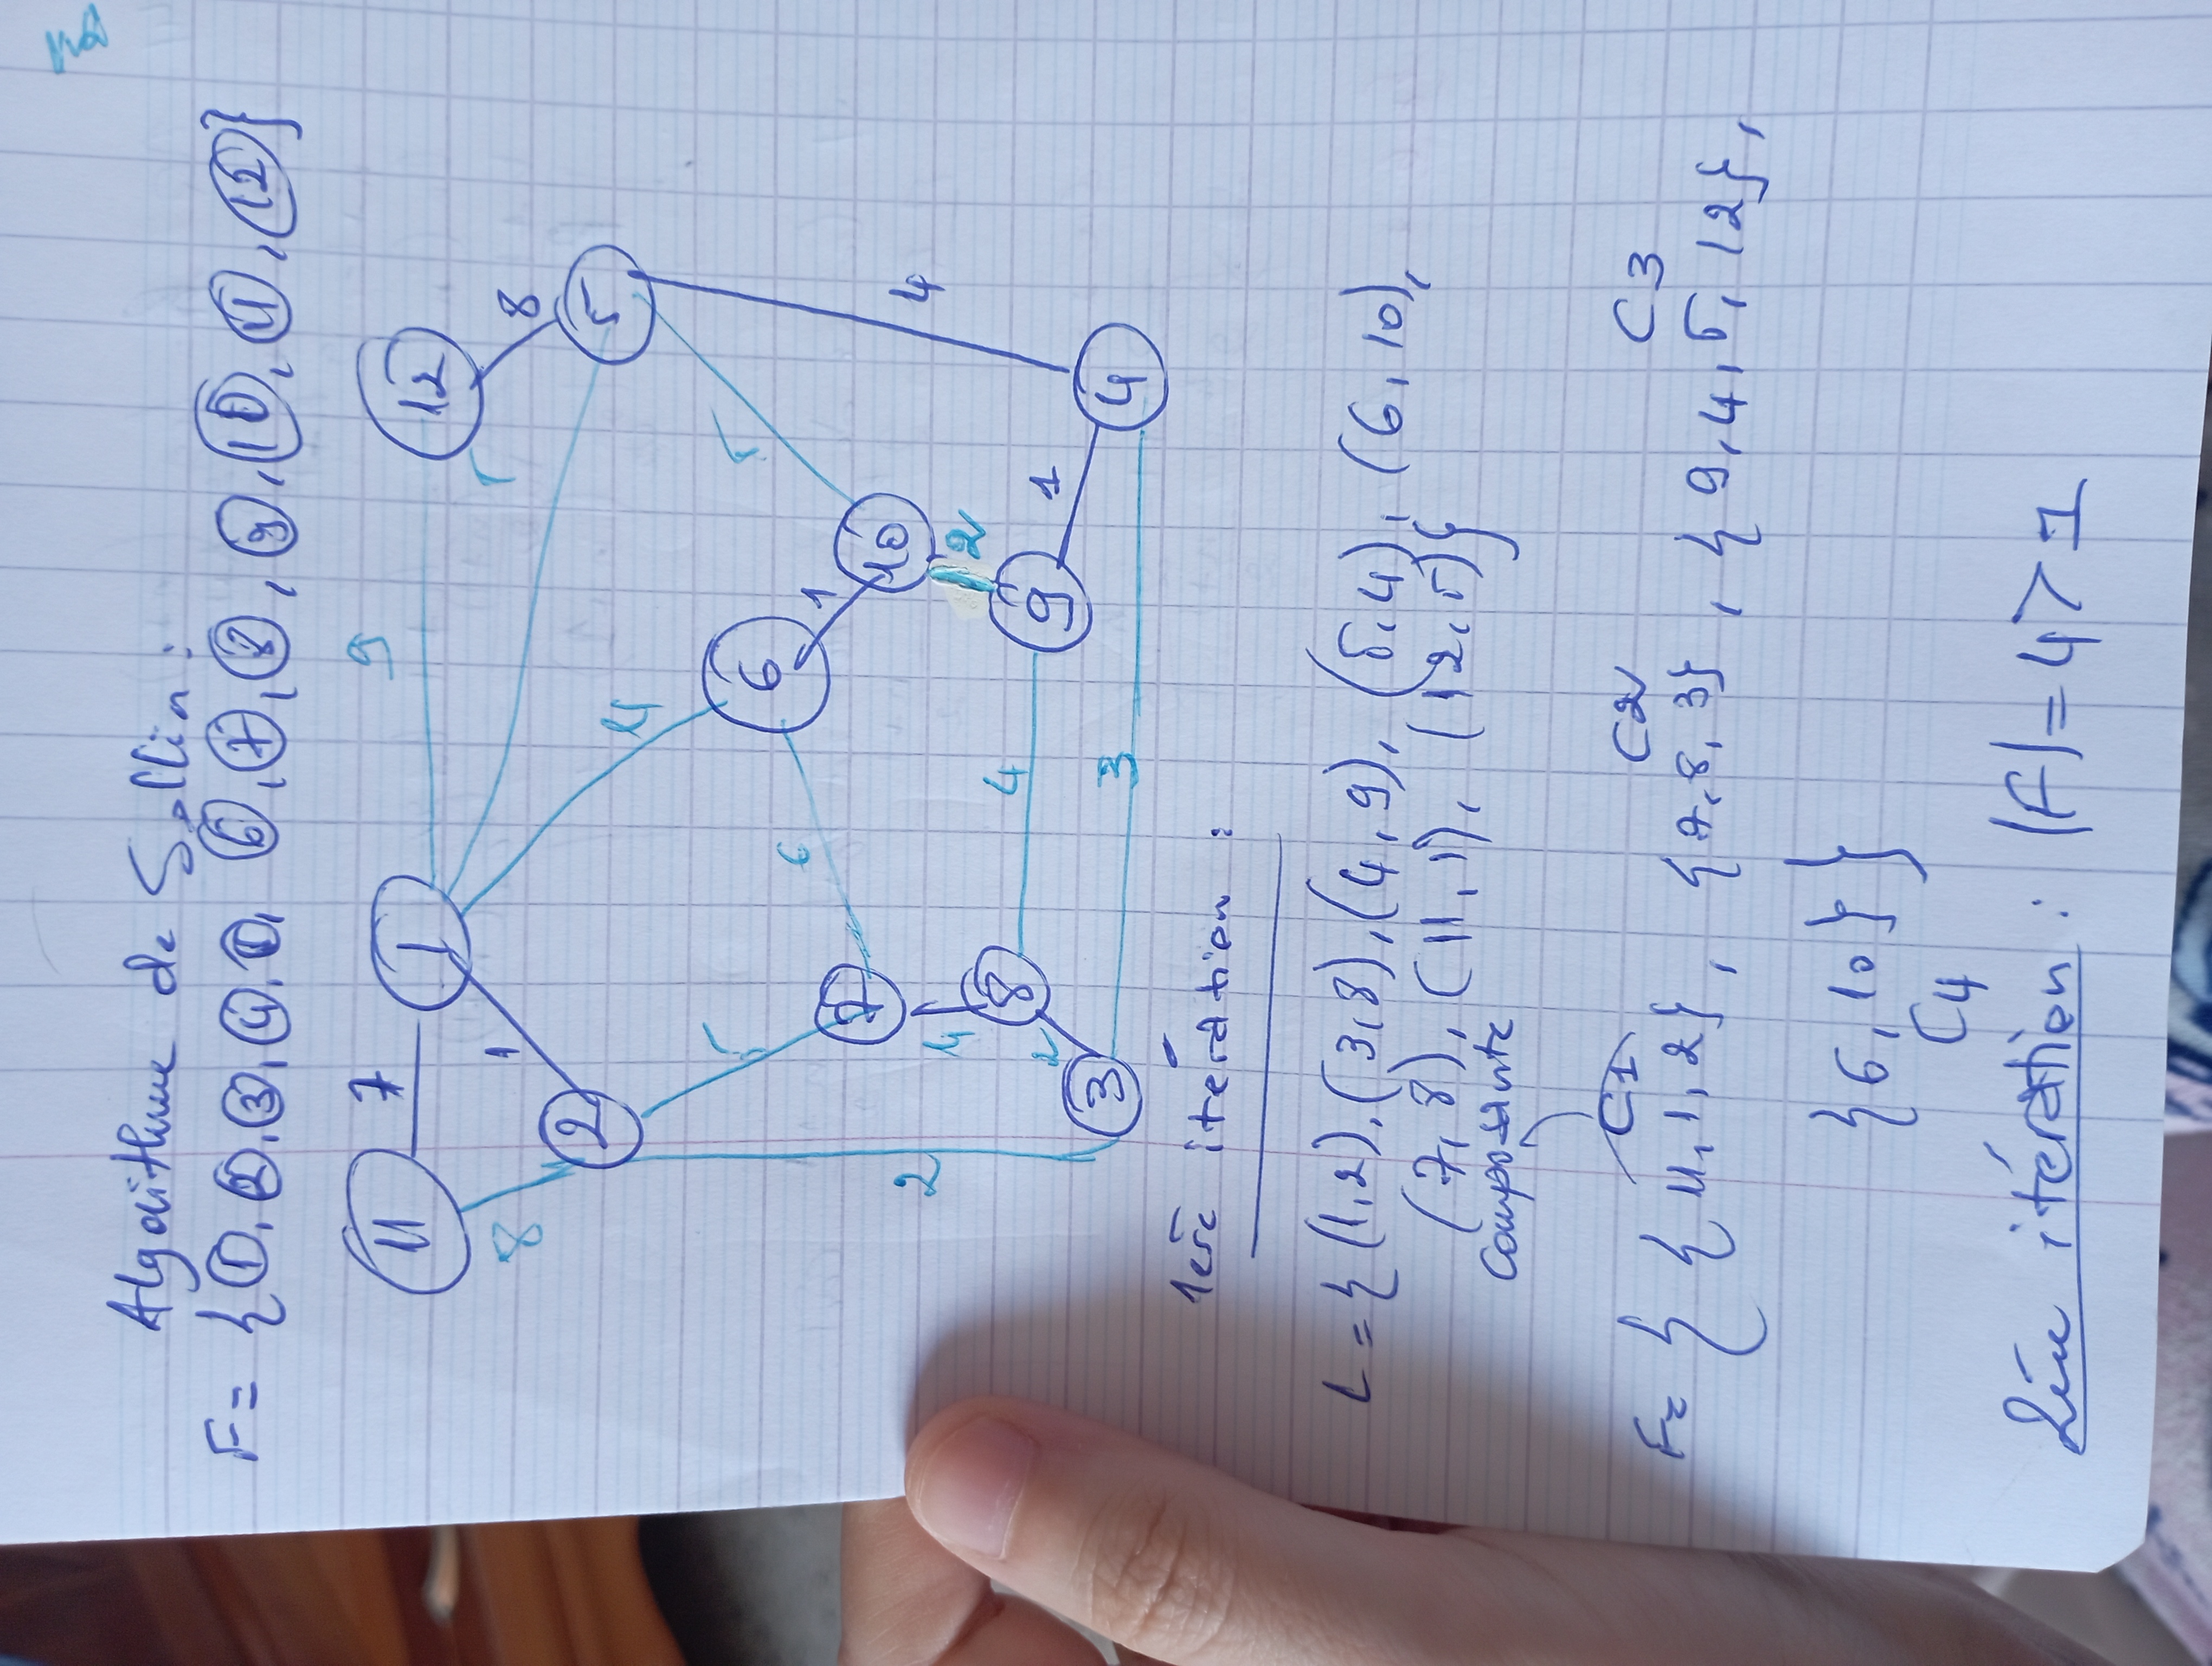 Algorithme de Sollin :
F = {①, ②, ③, ④, ⑤, ⑥, ⑦, ⑧, ⑨, ⑩, ⑪, ⑫}
11 7 1 9 12
8 1 5 8
2 5
4
5 6 5
6 1
7 10
2 4 2 4
8 4 9 1
2
3 3 4
1ère itération :
L = { (1,2), (3,8), (4,9), (5,4), (6,10),
(7,8), (11,1), (12,5)}
Composante
C1 C2 C3
F = { {11,1,2}, {7,8,3}, {9,4,5,12},
{6,10} }
C4
2ème itération : |F| = 4 > 1